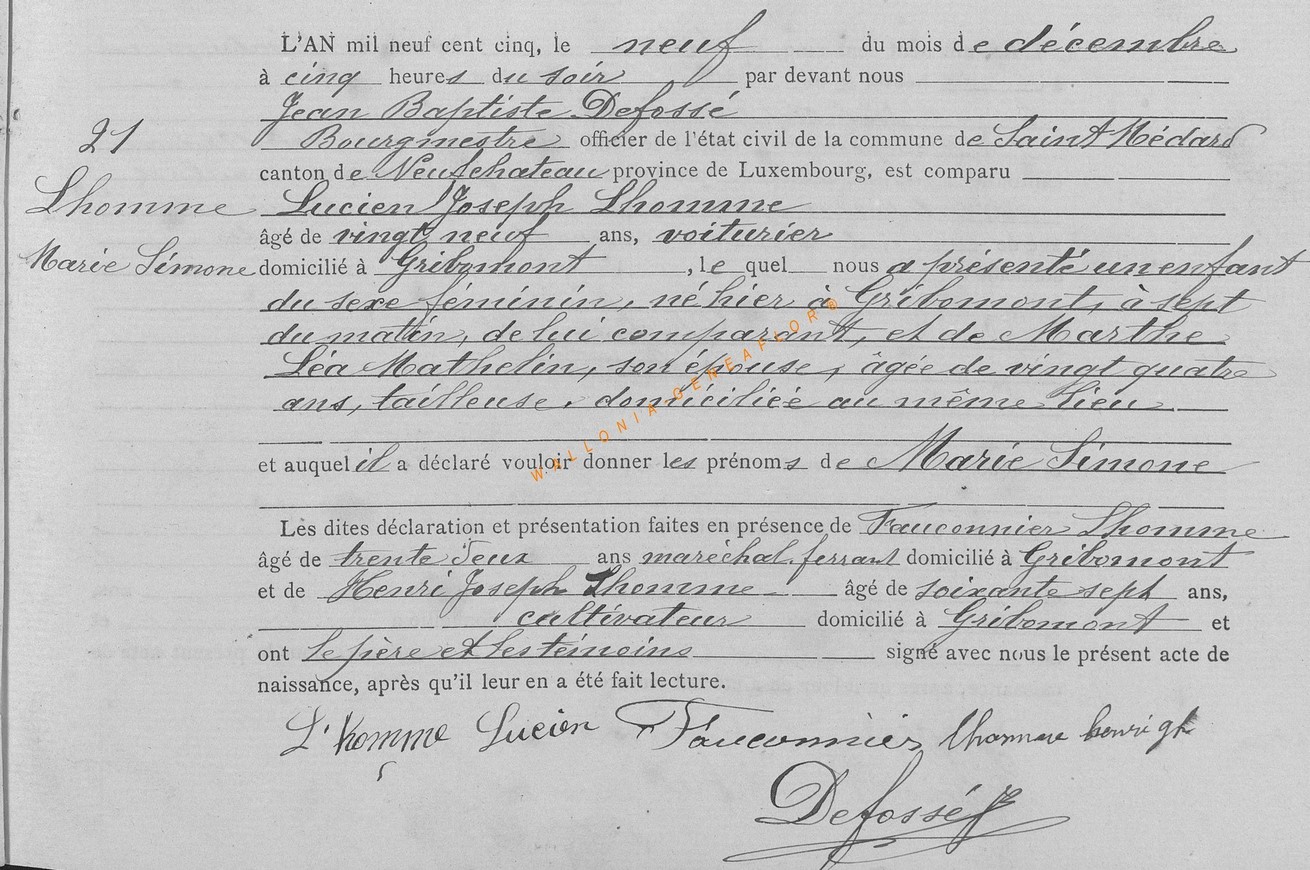 L'AN mil neuf cent cinq, le neuf du mois de décembre
à cinq heures du soir par devant nous
Jean Baptiste Defossé
21
Bourgmestre officier de l'état civil de la commune de Saint Médard
canton de Neufchateau province de Luxembourg, est comparu
Lhomme
Lucien Joseph Lhomme
âgé de vingt neuf ans, voiturier
Marie Simone
domicilié à Gribomont, le quel nous a présenté un enfant
du sexe féminin, né hier à Gribomont, à sept
du matin, de lui comparant, et de Marthe
Léa Mathelin, son épouse, âgée de vingt quatre
ans, tailleuse, domiciliée au même lieu
WALLONIA-GENEAFLOR©
et auquel il a déclaré vouloir donner les prénoms de Marie Simone
Les dites déclaration et présentation faites en présence de Fauconnier Lhomme
âgé de trente deux ans maréchal ferrant domicilié à Gribomont
et de Henri Joseph Lhomme âgé de soixante sept ans,
cultivateur domicilié à Gribomont et
ont le père et les témoins signé avec nous le présent acte de
naissance, après qu'il leur en a été fait lecture.
L'homme Lucien Fauconnier lhomme henri
Defossé